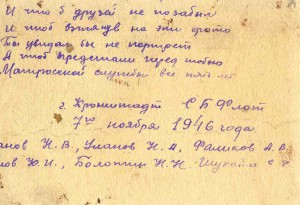 И чтоб друзей не позабыл
И чтоб взглянув на эти фото
Ты увидал бы не портрет
А чтоб предстали пред тобою
Матросской службы все пять лет
г. Кронштадт С Б Флот
7го ноября 1946 года.
анов Н. В., Уланов Н. А, Фаликов А. В.
нов Ю. И.,